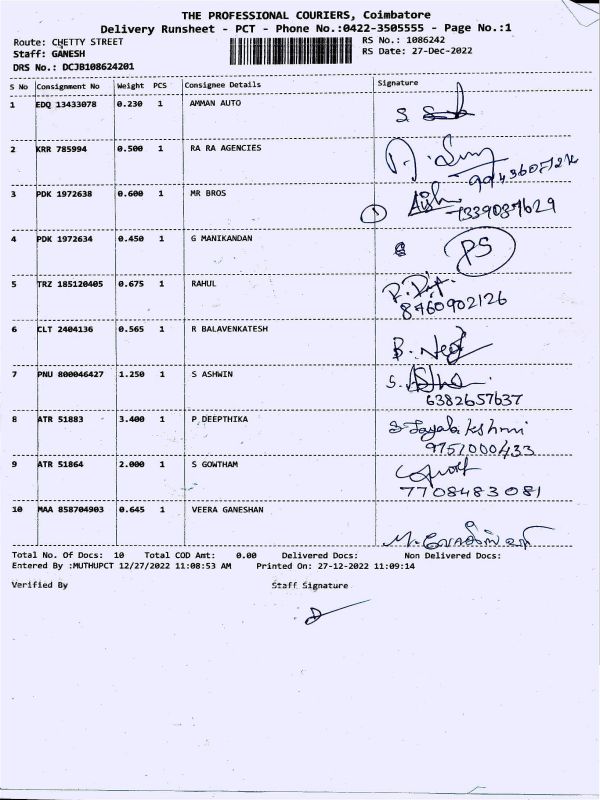 THE PROFESSIONAL COURIERS, Coimbatore
Delivery Runsheet - PCT - Phone No.:0422-3505555 - Page No.:1
Route: CHETTY STREET RS No.: 1086242
Staff: GANESH RS Date: 27-Dec-2022
DRS No.: DCJB108624201
S No Consignment No Weight PCS Consignee Details Signature
1 EDQ 13433078 0.230 1 AMMAN AUTO
2 KRR 785994 0.500 1 RA RA AGENCIES
3 PDK 1972638 0.600 1 MR BROS
1 7339037629
4 PDK 1972634 0.450 1 G MANIKANDAN PS
5 TRZ 185120405 0.675 1 RAHUL
8760902126
6 CLT 2404136 0.565 1 R BALAVENKATESH
7 PNU 800046427 1.250 1 S ASHWIN
6382657637
8 ATR 51883 3.400 1 P DEEPTHIKA S Jayalakshmi
9751000433
9 ATR 51864 2.000 1 S GOWTHAM
7708483081
10 MAA 858704903 0.645 1 VEERA GANESHAN
Total No. Of Docs: 10 Total COD Amt: 0.00 Delivered Docs: Non Delivered Docs:
Entered By :MUTHUPCT 12/27/2022 11:08:53 AM Printed On: 27-12-2022 11:09:14
Verified By Staff Signature